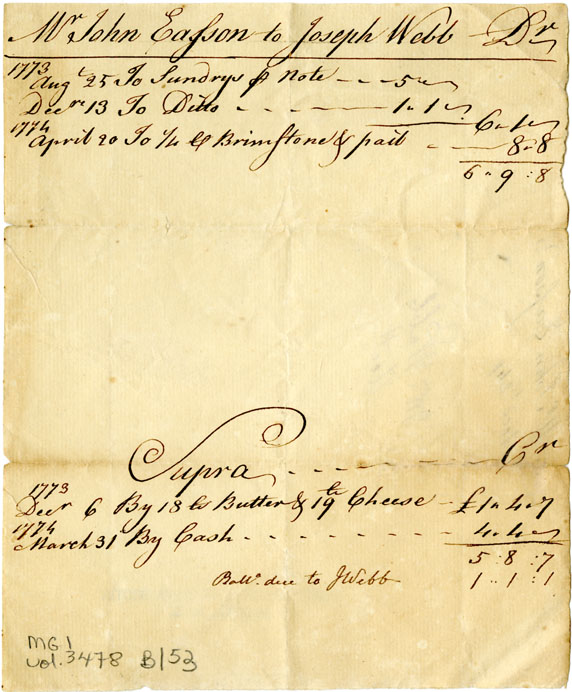 Mr John Easson to Joseph Webb — Dr
1773
Augt 25 To Sundrys p Note - - - 5 " "
Decr 13 To Ditto - - - 1 " 1 "
6 " 1 "
1774
April 20 To ¼ Brimstone & pail - 8 " 8
6 " 9 : 8
Supra - - - - Cr
1773
Decr 6 By 18 lb Butter & 19 lb Cheese - £1 " 4 " 7
1774
March 31 By Cash - - - - - - 4 " 4 "
5 : 8 : 7
Balle. due to JWebb 1 : 1 : 1
MG1
vol. 3478 B/53